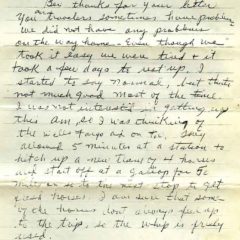 But thanks for your letter
as you travelers sometimes have problems
we did not have any problems
on the way home - Even though we
took it easy we were tired & it
took a few days to rest up. I
started to say normal, but that's
not much good most of the time
I was not interested in getting up
this Am So I was thinking of
the Wells Fargo on TV. They
allowed 5 minutes at a station to
hitch up a new team of 4 horses
and start off at a gallop for
miles or so to the next stop to get
fresh horses. I am sure that some
of the horses don't always feel up
to the trip, so the whip is freely
used.